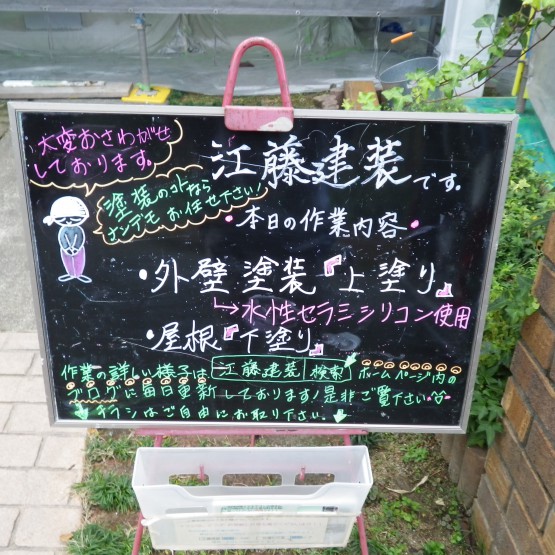 大変おさわがせ
しております。
江藤建装です。
塗装のコトなら
ナンデモお任せ下さい!
・本日の作業内容・
・外壁塗装『上塗り』
↳水性セラミシリコン使用
・屋根『下塗り』
作業の詳しい様子は 江藤建装 検索 ホームページ内の
ブログに毎日更新しております!是非ご覧下さい
↓チラシはご自由にお取り下さい。↓